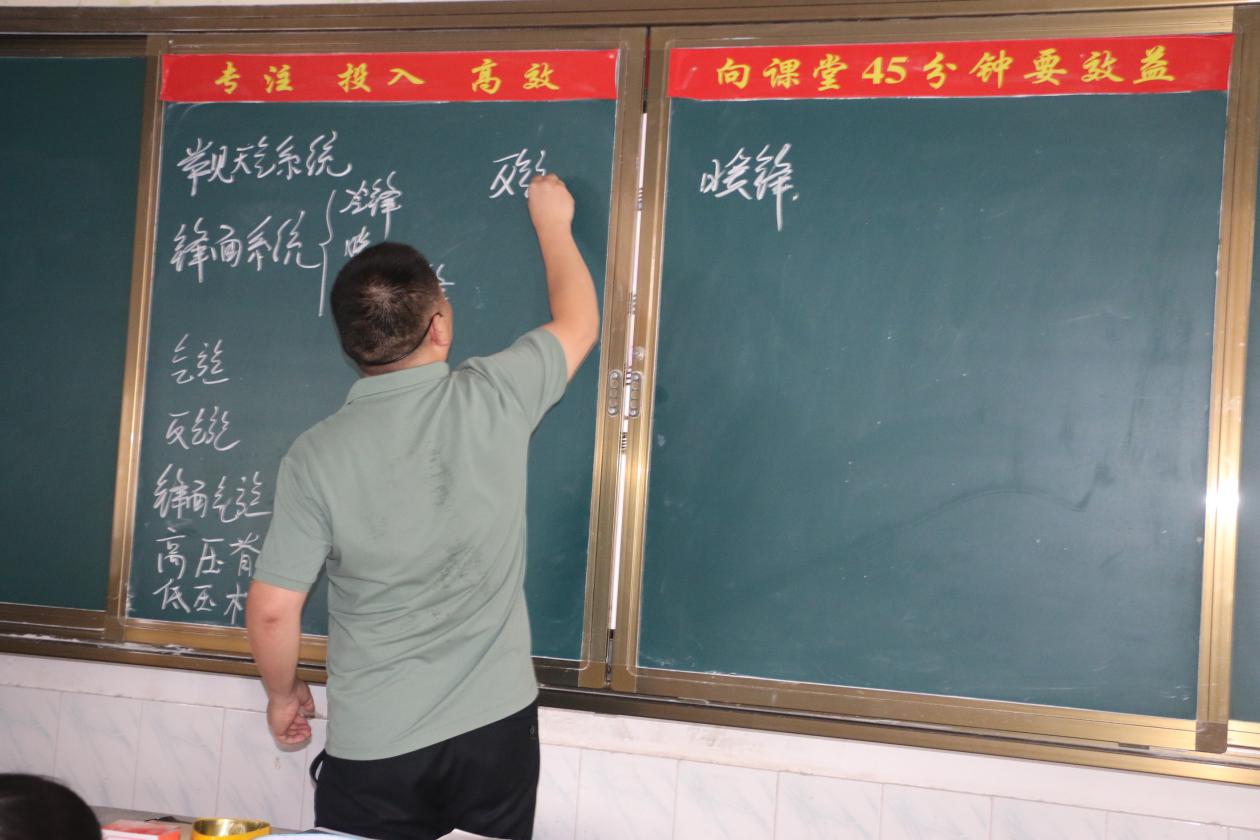 专注 投入 高效
向课堂45分钟要效益
常见天气系统
锋面系统
冷锋
暖
气旋
反气旋
锋面气旋
高压脊
低压
反气
暖锋